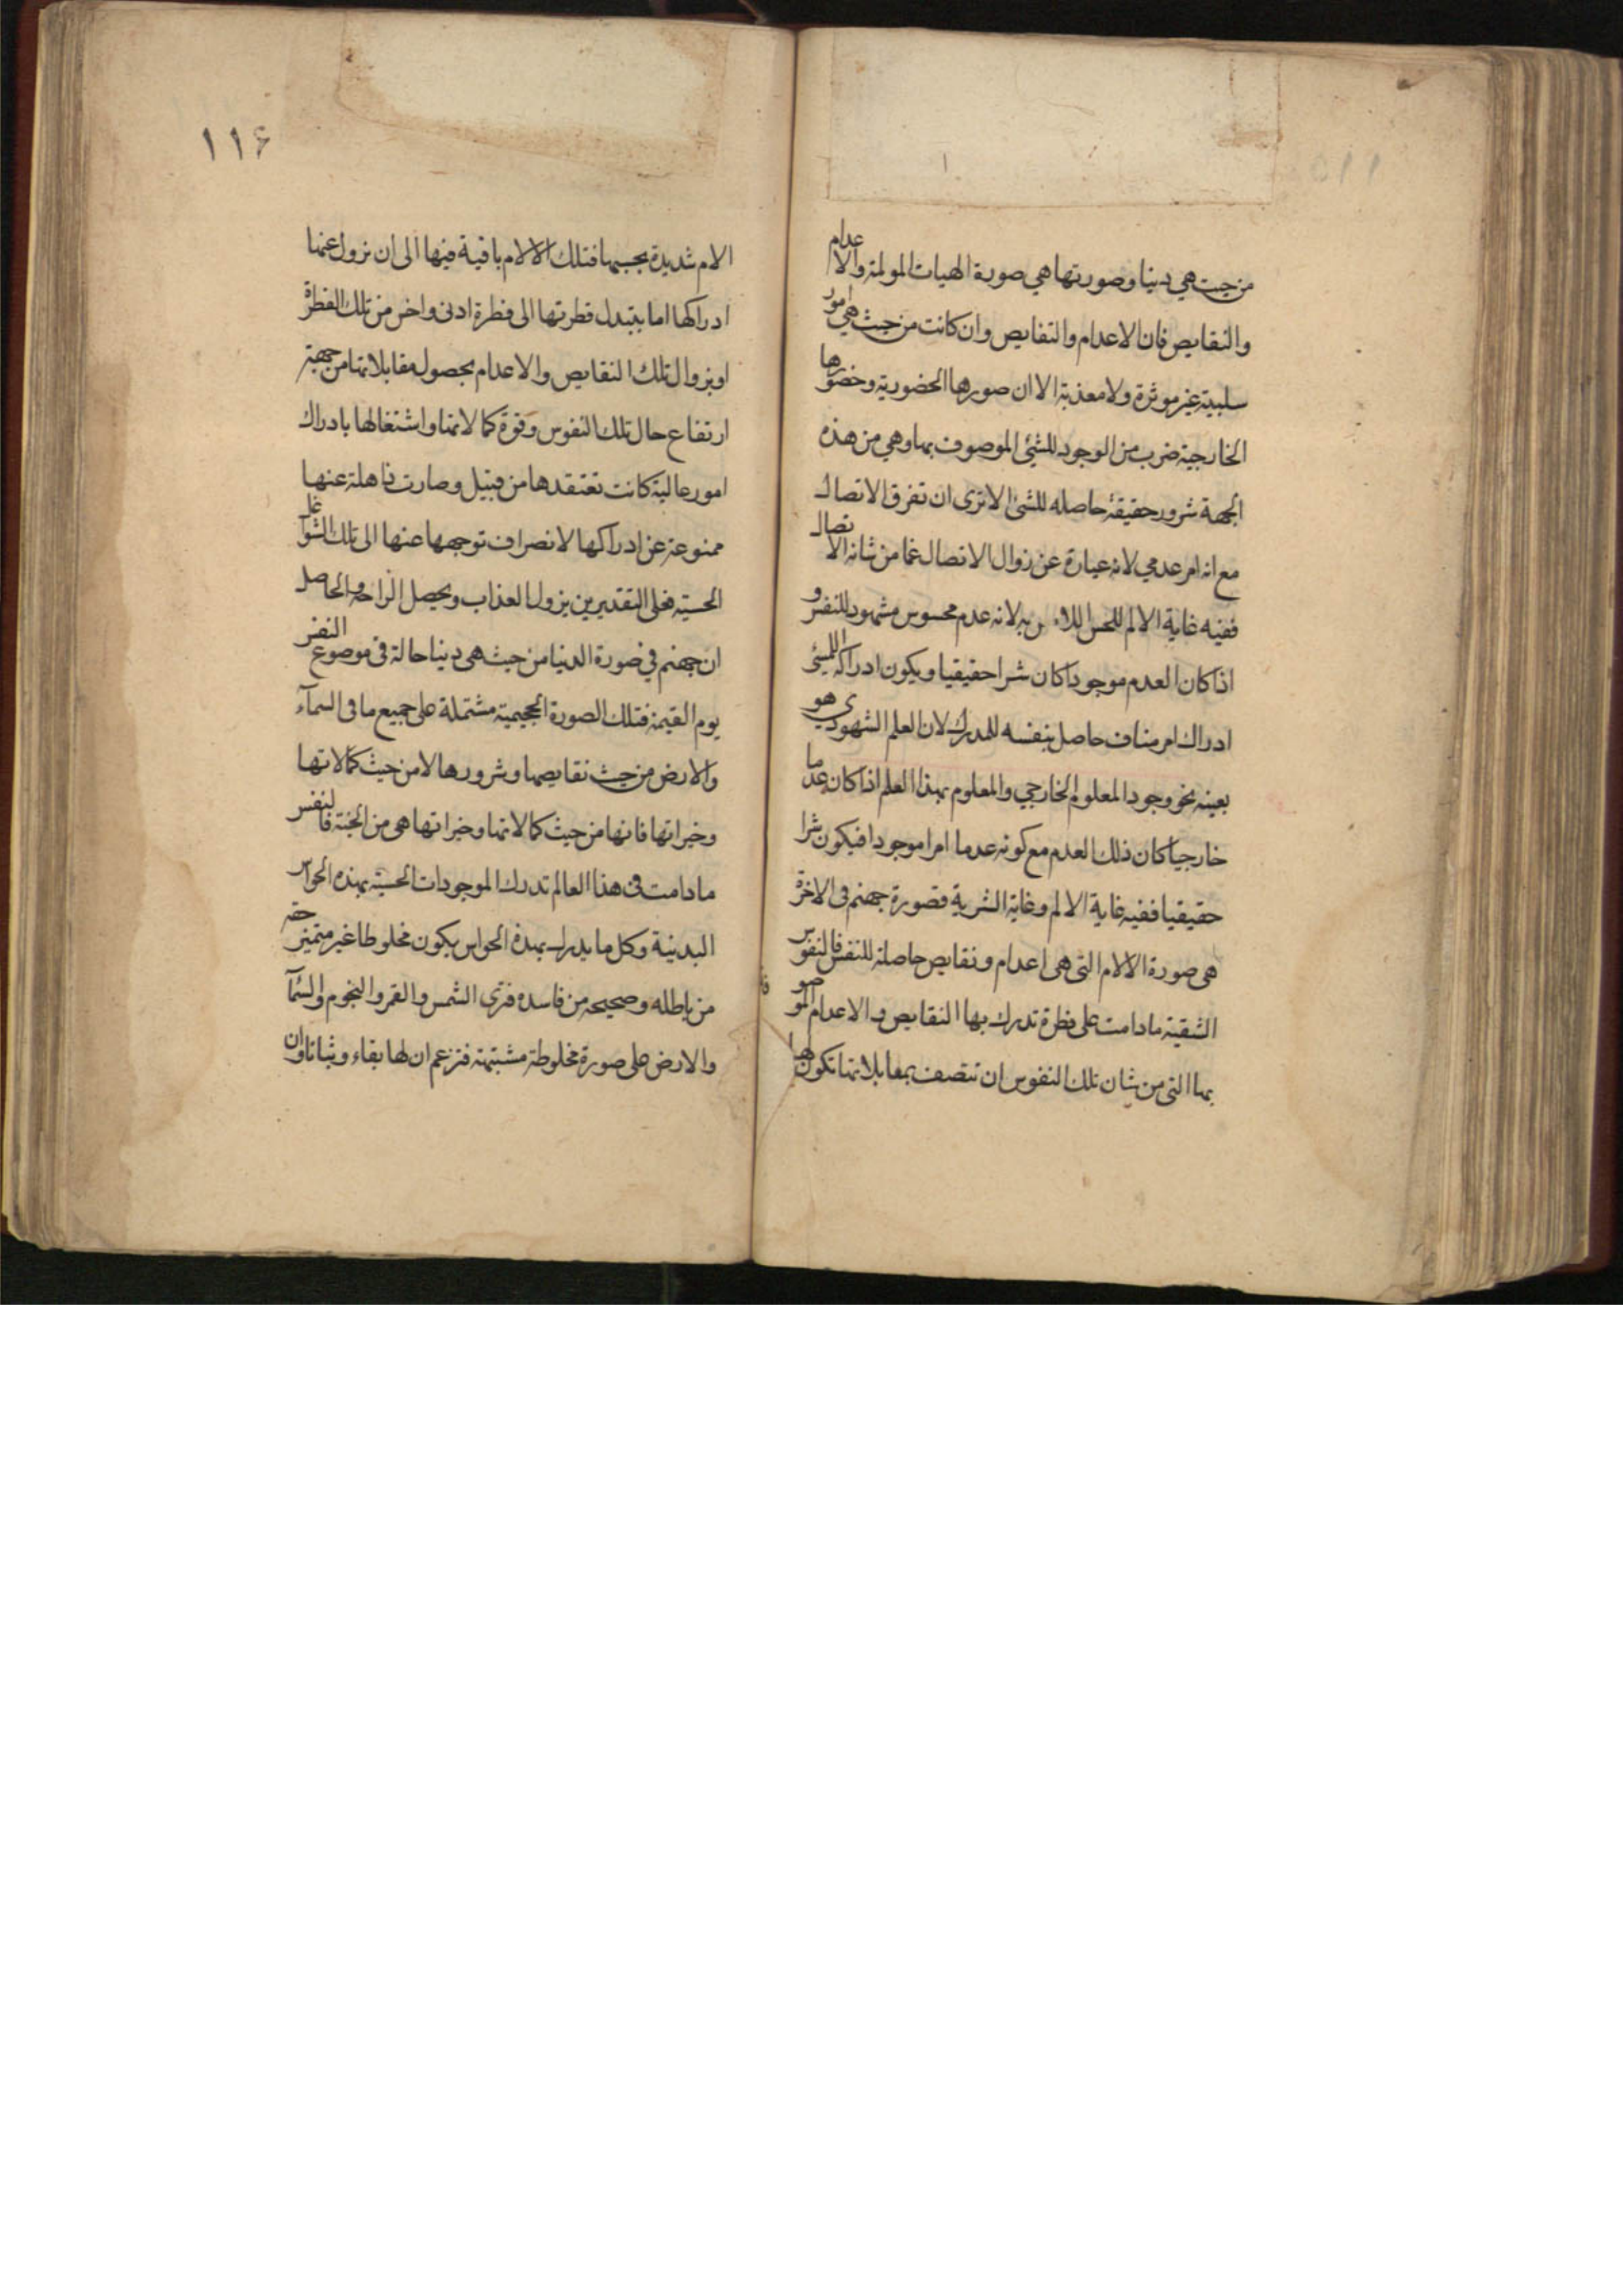 من حيث هي دنيا وصورتها هي صورة الهيات المولمة والاعدام
والنقايص فان الاعدام والنقايص وان كانت من حيث هي امور
سلبية غير موثرة ولا معذبة الا ان صورها الحضورية وحضورها
الخارجية ضرب من الوجود للشئ الموصوف بها وهي من هذه
الجهة شرور حقيقة حاصله للشئ الا ترى ان تفرق الاتصال
مع انه امر عدمي لانه عبارة عن زوال الاتصال عما من شانه الاتصال
ففيه غاية الالم للحس به لانه عدم محسوس مشهود للنفس و
اذا كان العدم موجودا كان شرا حقيقيا ويكون ادراكه للشئ
ادراك امر مناف حاصل بنفسه للمدرك لان العلم الشهودي هو
بعينه نحو وجود المعلوم الخارجي والمعلوم بهذا العلم اذا كان عدما
خارجيا كان ذلك العدم مع كونه عدما امرا موجودا فيكون شرا
حقيقيا ففيه غاية الالم وغاية الشرية فصورة جهنم فى الاخرة
هى صورة الالام التى هى اعدام ونقايص حاصلة للنفس فالنفوس
الشقية ما دامت على فطرة تدرك بها النقايص و الاعدام الموصو
بها التى من شان تلك النفوس ان تتصف بمقابلاتها تكون لها
١١٦
الام شديدة بحسبها فتلك الالام باقية فيها الى ان يزول عنها
ادراكها اما بتبدل فطرتها الى فطرة ادنى واخس من تلك الفطرة
او بزوال تلك النقايص والاعدام بحصول مقابلاتها من جهة
ارتفاع حال تلك النفوس وقوة كمالاتها واشتغالها بادراك
امور عالية كانت تعتقدها من قبيل وصارت ذاهلة عنها
ممنوعة عن ادراكها لانصراف توجهها عنها الى تلك الشواغل
الحسية فعلى التقديرين يزول العذاب ويحصل الراحة والحاصل
ان جهنم في صورة الدنيا من حيث هى دنيا حالة فى موضوع النفس
يوم القيمة فتلك الصورة الجحيمية مشتملة على جميع ما فى السمآء
والارض من حيث نقايصها وشرورها لا من حيث كمالاتها
وخيراتها فانها من حيث كمالاتها وخيراتها هى من الجنة فالنفس
ما دامت فى هذا العالم تدرك الموجودات الحسية بهذه الحواس
البدنية وكل ما يدرك بهذه الحواس يكون مخلوطا غير متميز حقه
من باطله وصحيحه من فاسده فترى الشمس والقمر والنجوم والسمآ
والارض على صورة مخلوطة مشتبهة فتزعم ان لها بقاء وثباتا وان